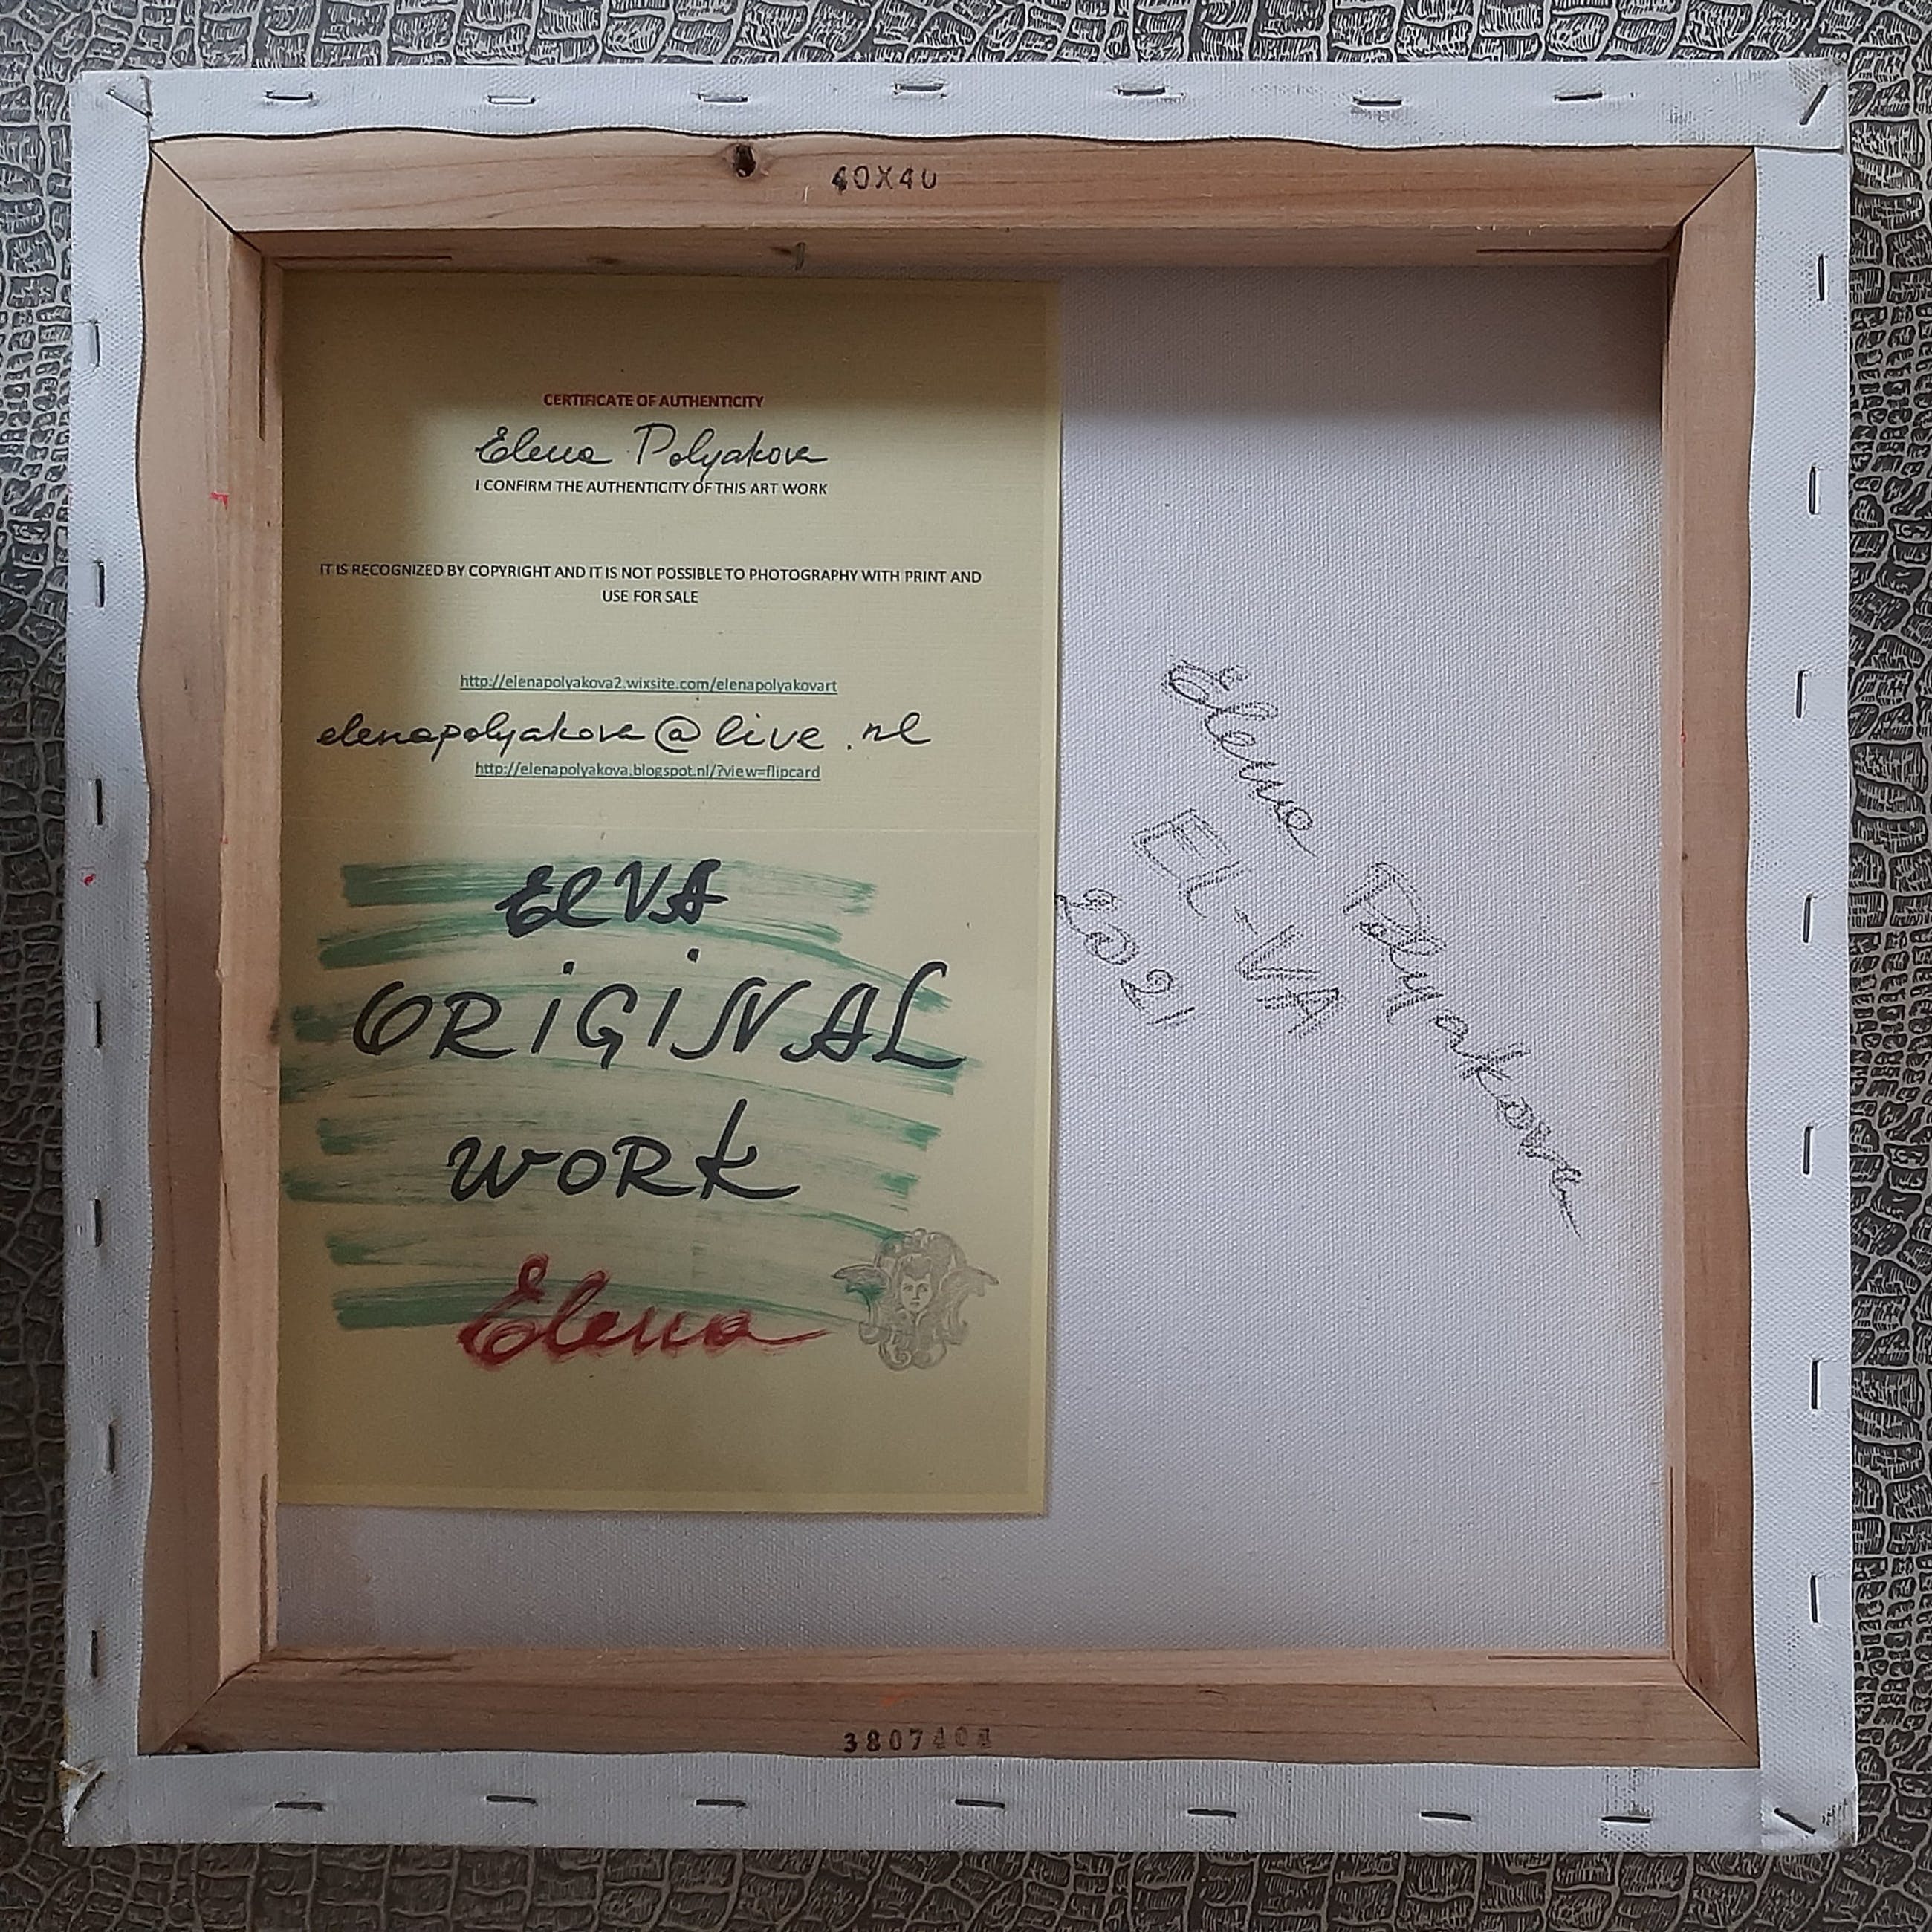 40X40
CERTIFICATE OF AUTHENTICITY
Elena Polyakova
I CONFIRM THE AUTHENTICITY OF THIS ART WORK
IT IS RECOGNIZED BY COPYRIGHT AND IT IS NOT POSSIBLE TO PHOTOGRAPHY WITH PRINT AND
USE FOR SALE
http://elenapolyakova2.wixsite.com/elenapolyakovart
elenapolyakova@live.nl
http://elenapolyakova.blogspot.nl/?view=flipcard
ElVA
ORiGiNAL
WORK
Elena
Elena Polyakova
EL-VA
2021
3807404